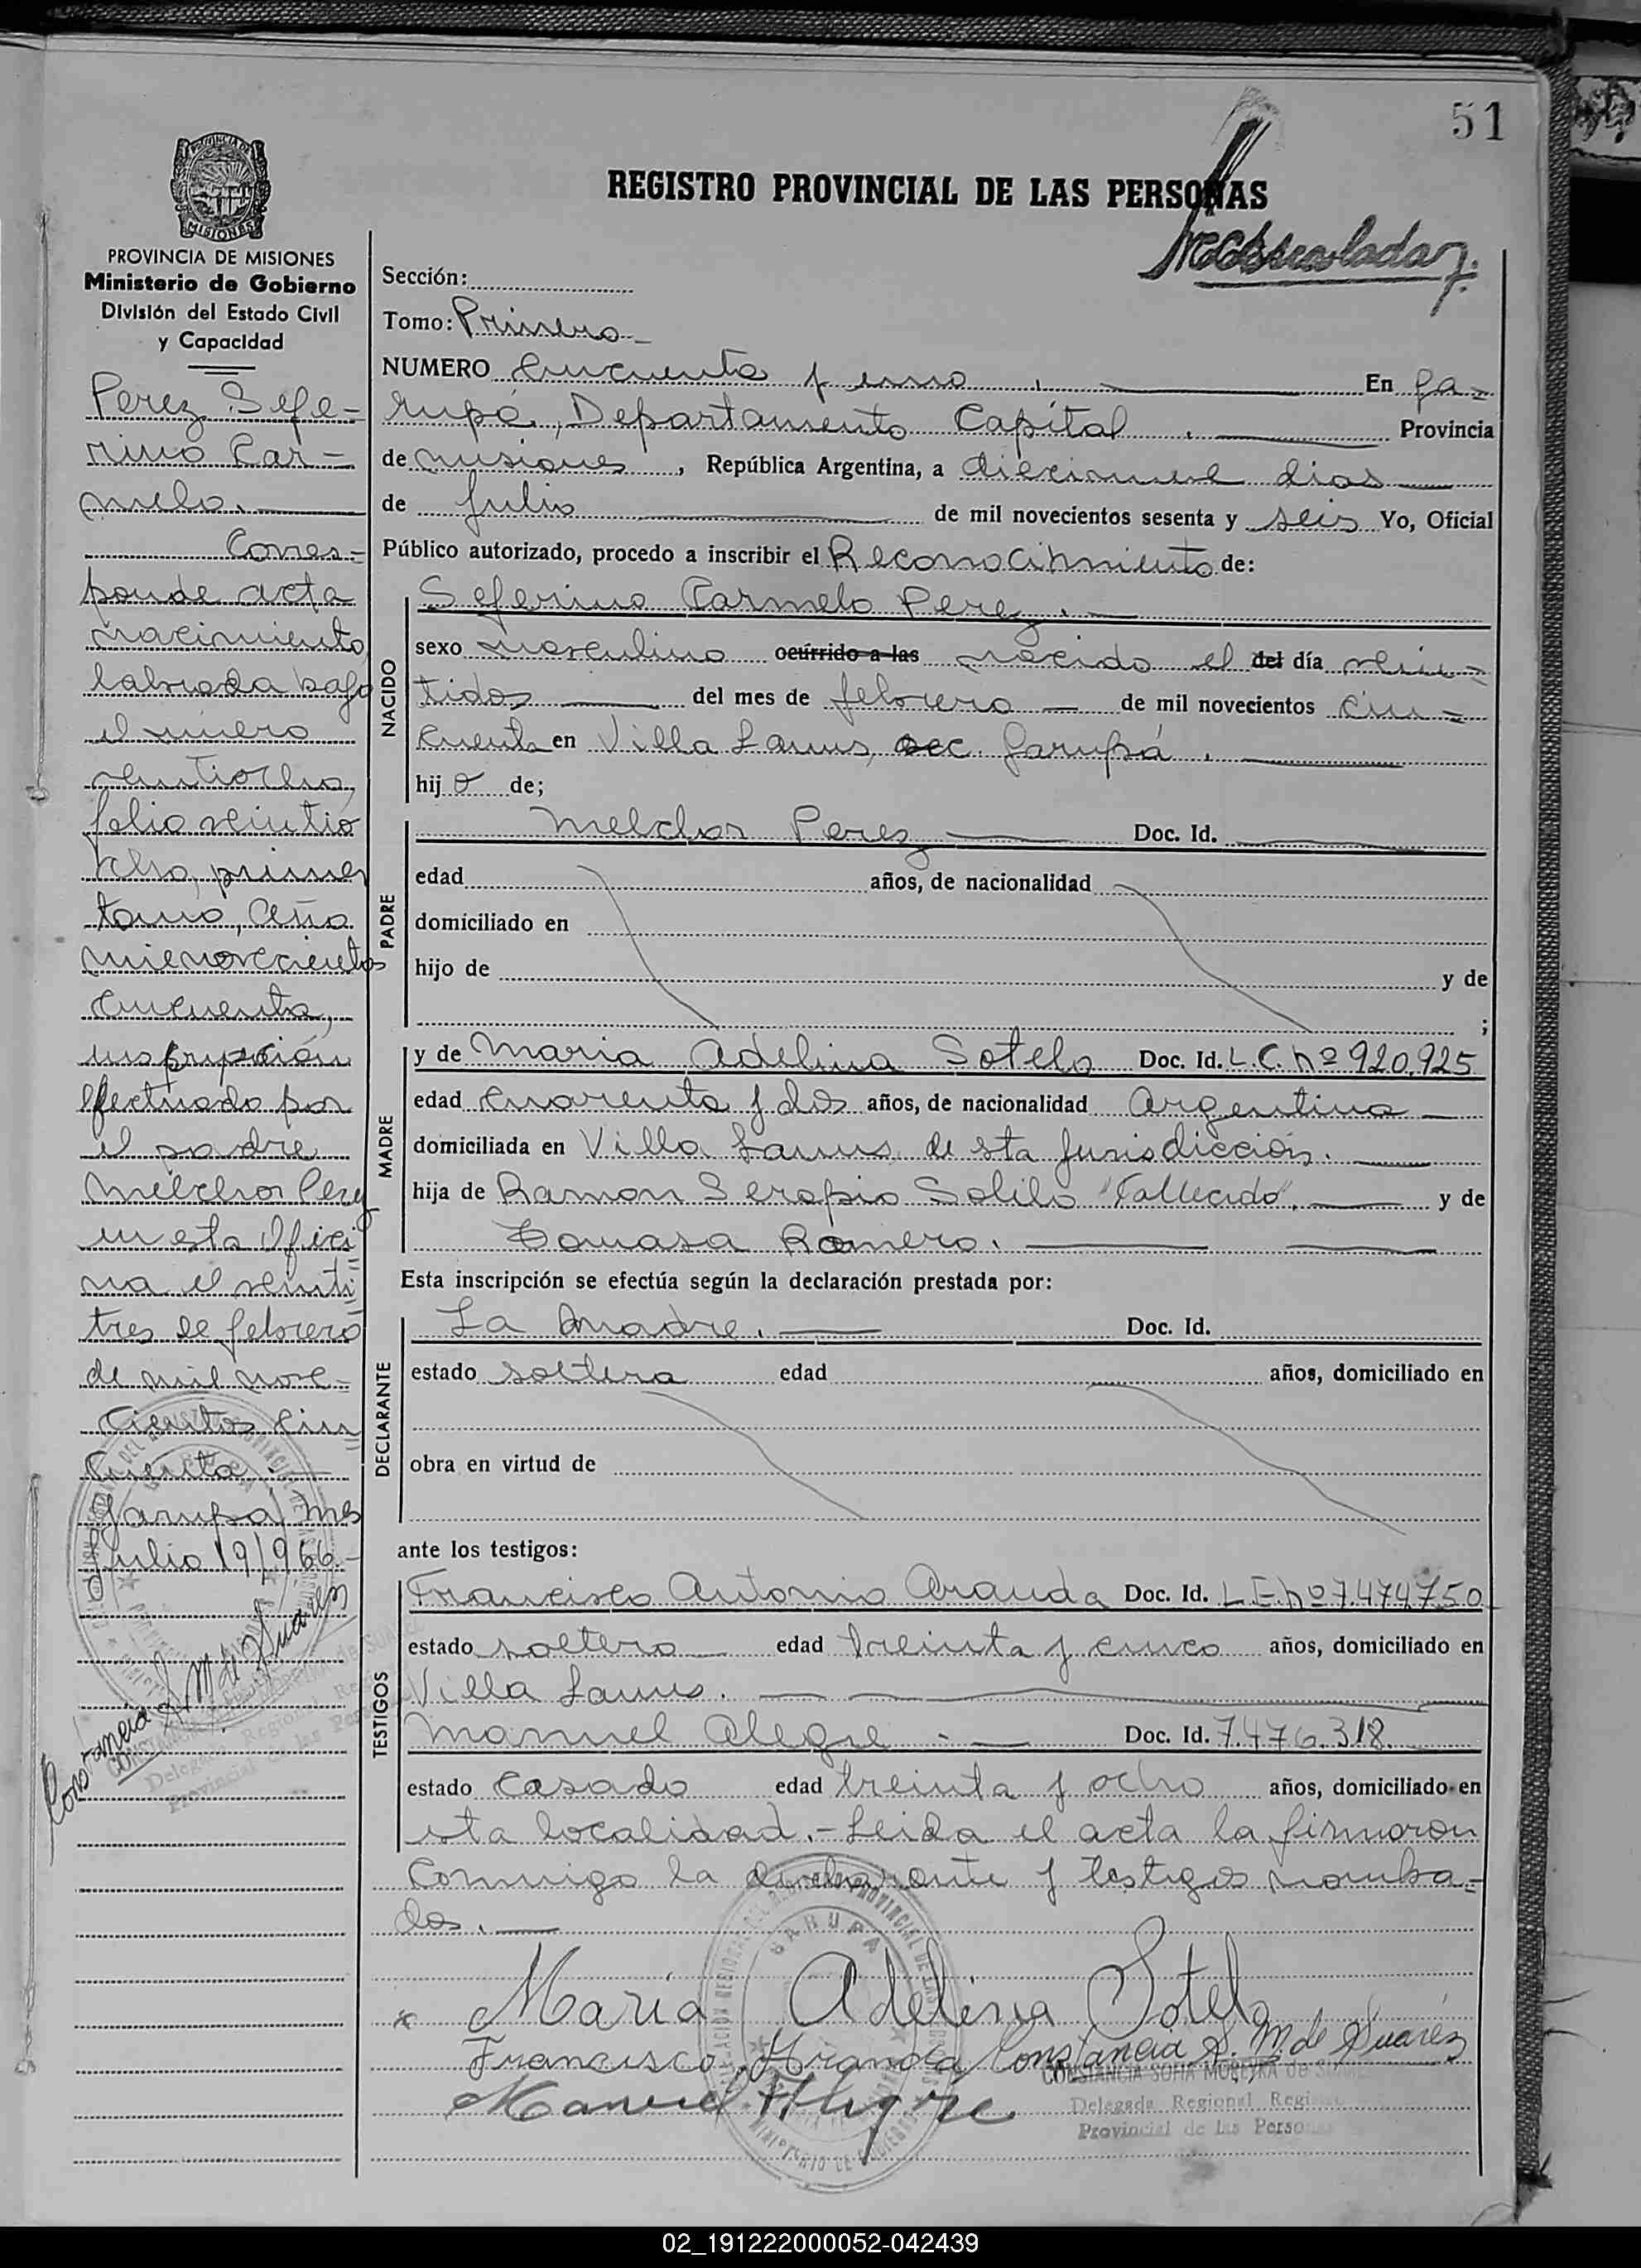 51
REGISTRO PROVINCIAL DE LAS PERSONAS
PROVINCIA DE MISIONES
Ministerio de Gobierno
División del Estado Civil
y Capacidad
Perez Sefe-
rino Car-
melo.
Corres-
ponde acta
nacimiento
labrada bajo
el número
veintiocho,
folio veintio
cho, primer
tomo, año
mil novecientos
cincuenta,
inscripción
efectuada por
el padre
Melchor Perez
en esta Ofici
na el veinti
tres de febrero
de mil nove-
cientos cin
cuenta.
Garupá, Mnes
Julio 19/966.-
Constancia S. M. de Suárez
Delegada Regional Re
Provincial de las Pers
Sección:
Tomo: Primero
NUMERO Cincuenta y uno. En Ga-
rupá, Departamento Capital. Provincia
de Misiones, República Argentina, a diecinueve dias
de Julio de mil novecientos sesenta y seis Yo, Oficial
Público autorizado, procedo a inscribir el Reconocimiento de:
NACIDO
Seferino Carmelo Perez.
sexo masculino ocurrido a las nacido el del día vein-
tidos del mes de febrero de mil novecientos cin-
cuenta en Villa Lanus, sec. Garupá.
hijo de;
PADRE
Melchor Perez Doc. Id.
edad años, de nacionalidad
domiciliado en
hijo de y de
;
MADRE
y de Maria Adelina Sotelo Doc. Id. L.C. nº 920.925
edad cuarenta y dos años, de nacionalidad Argentina
domiciliada en Villa Lanus, de esta Jurisdicción.
hija de Ramon Serapio Solilo "Fallecido", y de
Tomasa Romero.
Esta inscripción se efectúa según la declaración prestada por:
DECLARANTE
La madre. Doc. Id.
estado soltera edad años, domiciliado en
obra en virtud de
ante los testigos:
TESTIGOS
Francisco Antonio Aranda Doc. Id. L.E. nº 7.474.750
estado soltero edad treinta y cinco años, domiciliado en
Villa Lanus.
Manuel Alegre - Doc. Id. 7.476.318.
estado casado edad treinta y ocho años, domiciliado en
esta localidad.- Leida el acta la firmaron
conmigo la declarante y testigos nombra-
dos.
María Adelina Sotelo
Francisco Aranda Constancia S. M. de Suárez
CONSTANCIA SOFIA MOREYRA de
Manuel Alegre
Delegada Regional Regi
Provincial de las Perso
02_191222000052-042439